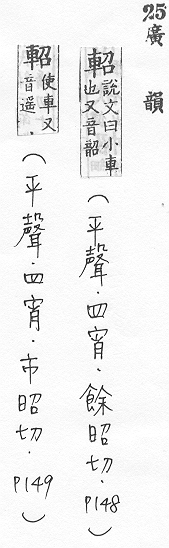 25廣韻
軺說文曰小車也又音韶(平聲.四宵.餘昭切.P148)
軺使車又音遥.(平聲.四宵.市昭切.P149)